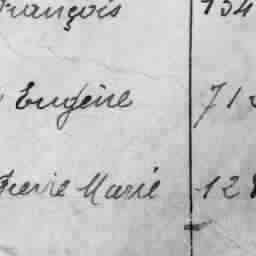 François 134
Eugène 71
Pierre Marie 12